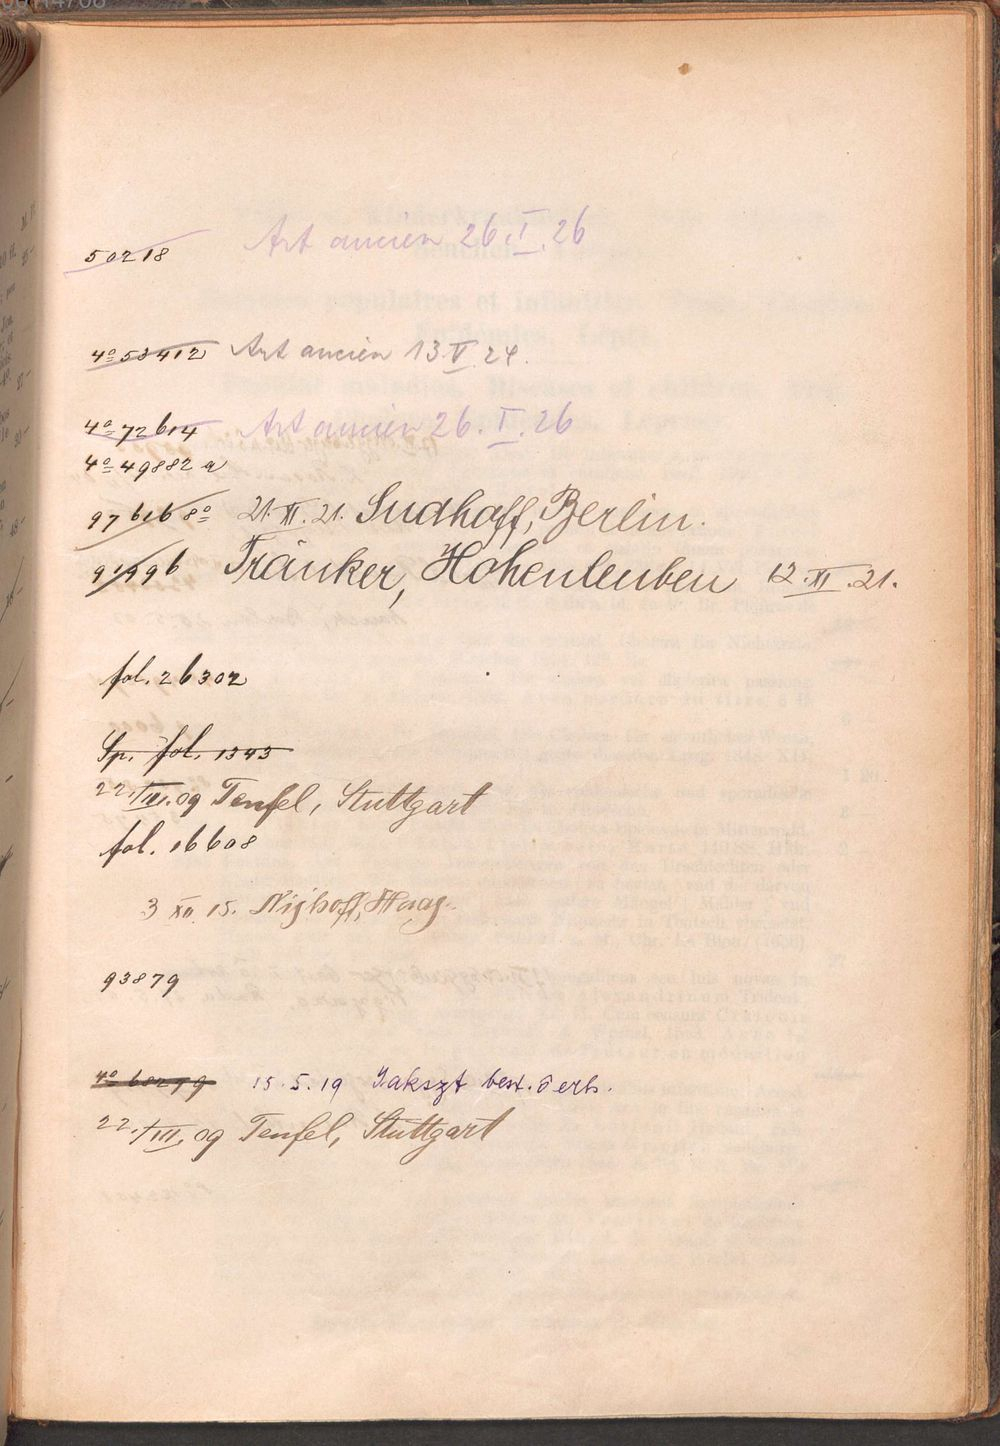 50218 Art ancien 26.I.26
4º 53412 Art ancien 13.V.24.
4º 72614 Art ancien 26.I.26
4º 49882 a
97616 8º 21.XI.21. Sudhoff, Berlin.
91996 Tränker, Hohenleuben 12.XI.21.
fol. 26302
Sp. fol. 1343
22./III.09 Teufel, Stuttgart
fol. 16608
3 XII 15. Nijhoff, Haag.
93879
4º 15.5.19 Jakszt best.
22./III.09 Teufel, Stuttgart